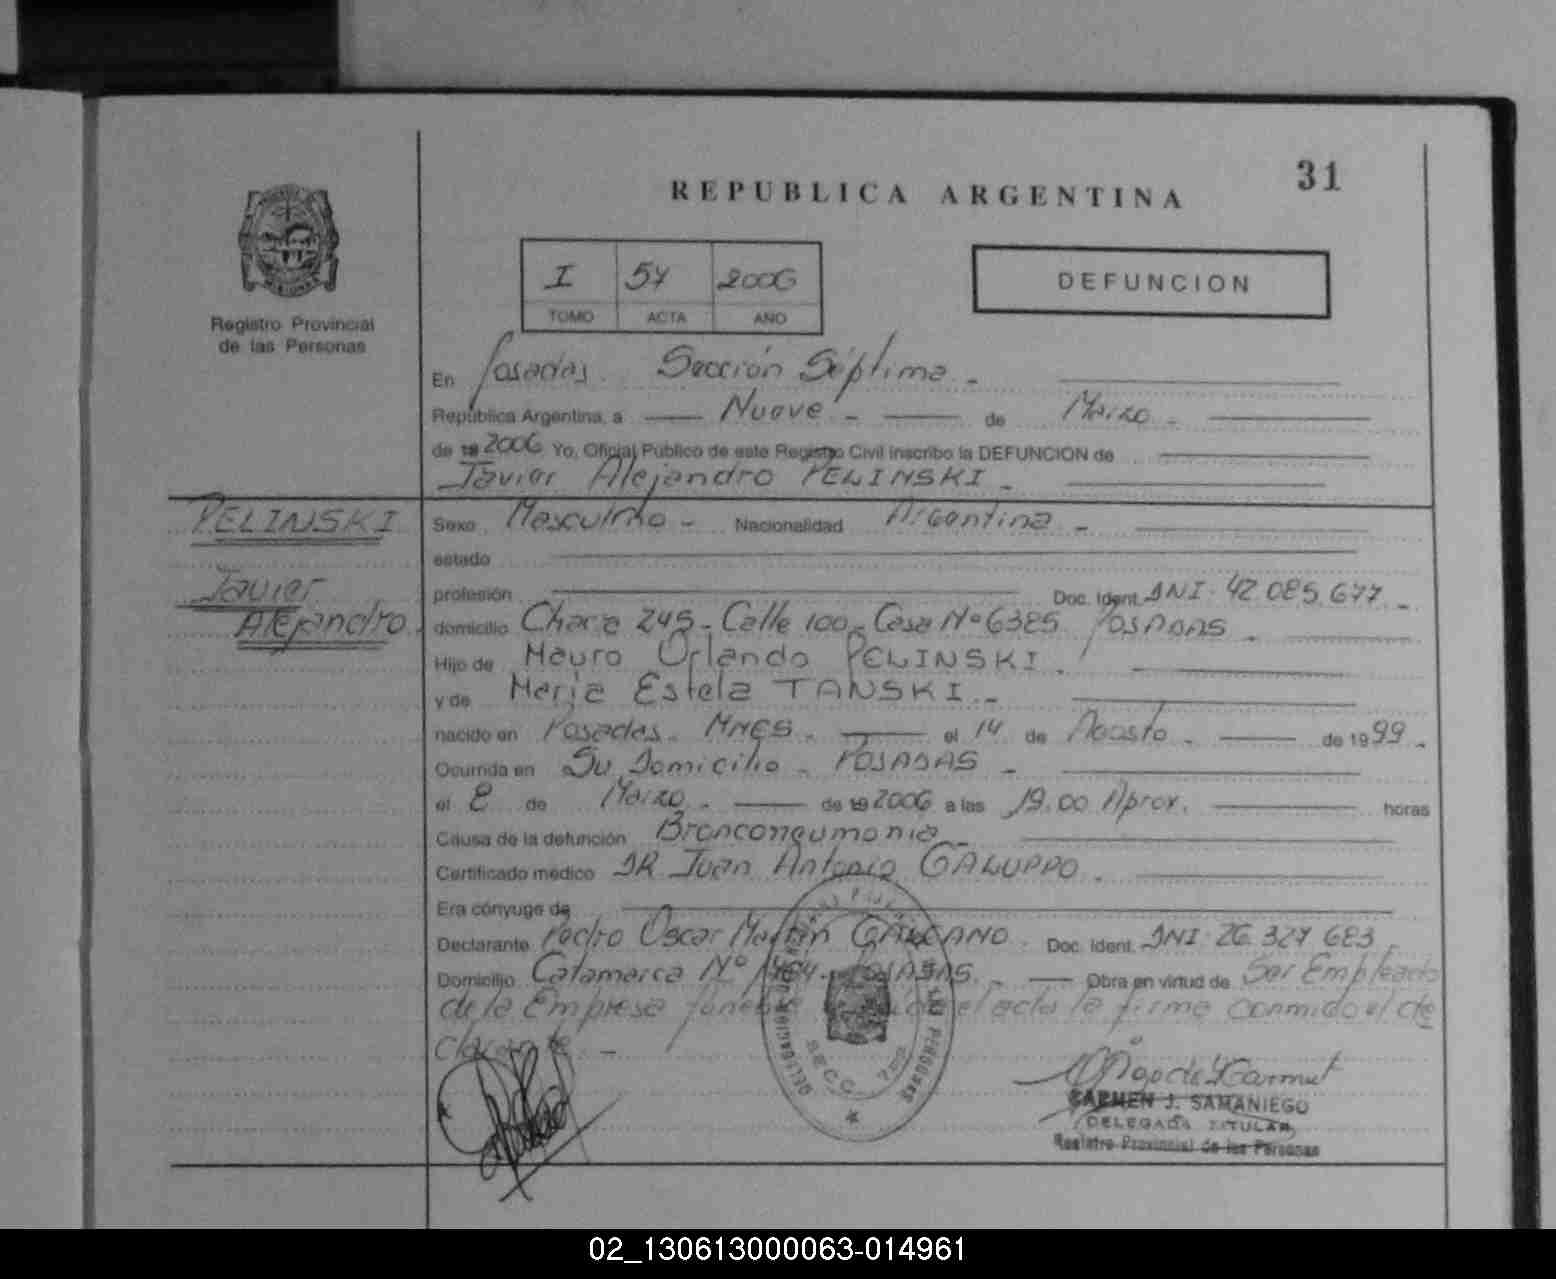 31
REPUBLICA ARGENTINA
I 57 2006
TOMO ACTA AÑO
DEFUNCION
Registro Provincial
de las Personas
En Posadas. Sección Séptima.-
República Argentina, a Nueve.- de Marzo.-
de 19 2006 Yo, Oficial Público de este Registro Civil inscribo la DEFUNCION de
Javier Alejandro PELINSKI.-
PELINSKI
Javier
Alejandro
Sexo Masculino.- Nacionalidad Argentina.-
estado
profesión Doc. Ident. DNI. 42.085.677.-
domicilio Chacra 245- Calle 100- Casa Nº 6385 POSADAS.-
Hijo de Mauro Orlando PELINSKI.-
y de María Estela TANSKI.-
nacido en Posadas. MNES.- el 14 de Agosto.- de 1999.-
Ocurrida en Su Domicilio.- POSADAS.-
el 8 de Marzo.- de 19 2006 a las 19.00 Aprox. horas
Causa de la defunción Bronconeumonia.-
Certificado médico DR Juan Antonio GALUPPO.-
Era cónyuge de
Declarante Pedro Oscar Martín Doc. Ident. DNI. 26.327.683
Domicilio Catamarca Nº POSADAS.- Obra en virtud de Ser Empleado
de la Empresa el acta la firma conmigo el de
clarante.-
SECC. 7ma
CARMEN J. SAMANIEGO
DELEGADA TITULAR
Registro Provincial de las Personas
02_130613000063-014961